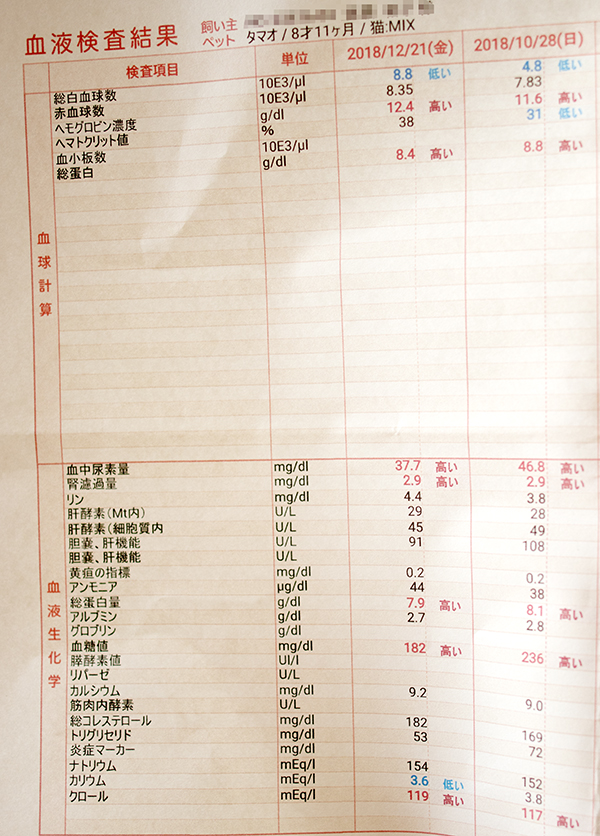 血液検査結果
飼い主
ペット タマオ / 8才11ヶ月 / 猫:MIX
検査項目 単位 2018/12/21(金) 2018/10/28(日)
血球計算
総白血球数 10E3/µl 8.8 低い 4.8 低い
赤血球数 10E3/µl 8.35 7.83
ヘモグロビン濃度 g/dl 12.4 高い 11.6 高い
ヘマトクリット値 % 38 31 低い
血小板数 10E3/µl
総蛋白 g/dl 8.4 高い 8.8 高い
血液生化学
血中尿素量 mg/dl 37.7 高い 46.8 高い
腎濾過量 mg/dl 2.9 高い 2.9 高い
リン mg/dl 4.4 3.8
肝酵素(Mt内) U/L 29 28
肝酵素(細胞質内 U/L 45 49
胆嚢、肝機能 U/L 91 108
胆嚢、肝機能 U/L
黄疸の指標 mg/dl 0.2 0.2
アンモニア µg/dl 44 38
総蛋白量 g/dl 7.9 高い 8.1 高い
アルブミン g/dl 2.7 2.8
グロブリン g/dl
血糖値 mg/dl 182 高い 236 高い
膵酵素値 UI/l
リパーゼ U/L
カルシウム mg/dl 9.2 9.0
筋肉内酵素 U/L
総コレステロール mg/dl 182 169
トリグリセリド mg/dl 53 72
炎症マーカー mg/dl
ナトリウム mEq/l 154 152
カリウム mEq/l 3.6 低い 3.8
クロール mEq/l 119 高い 117 高い